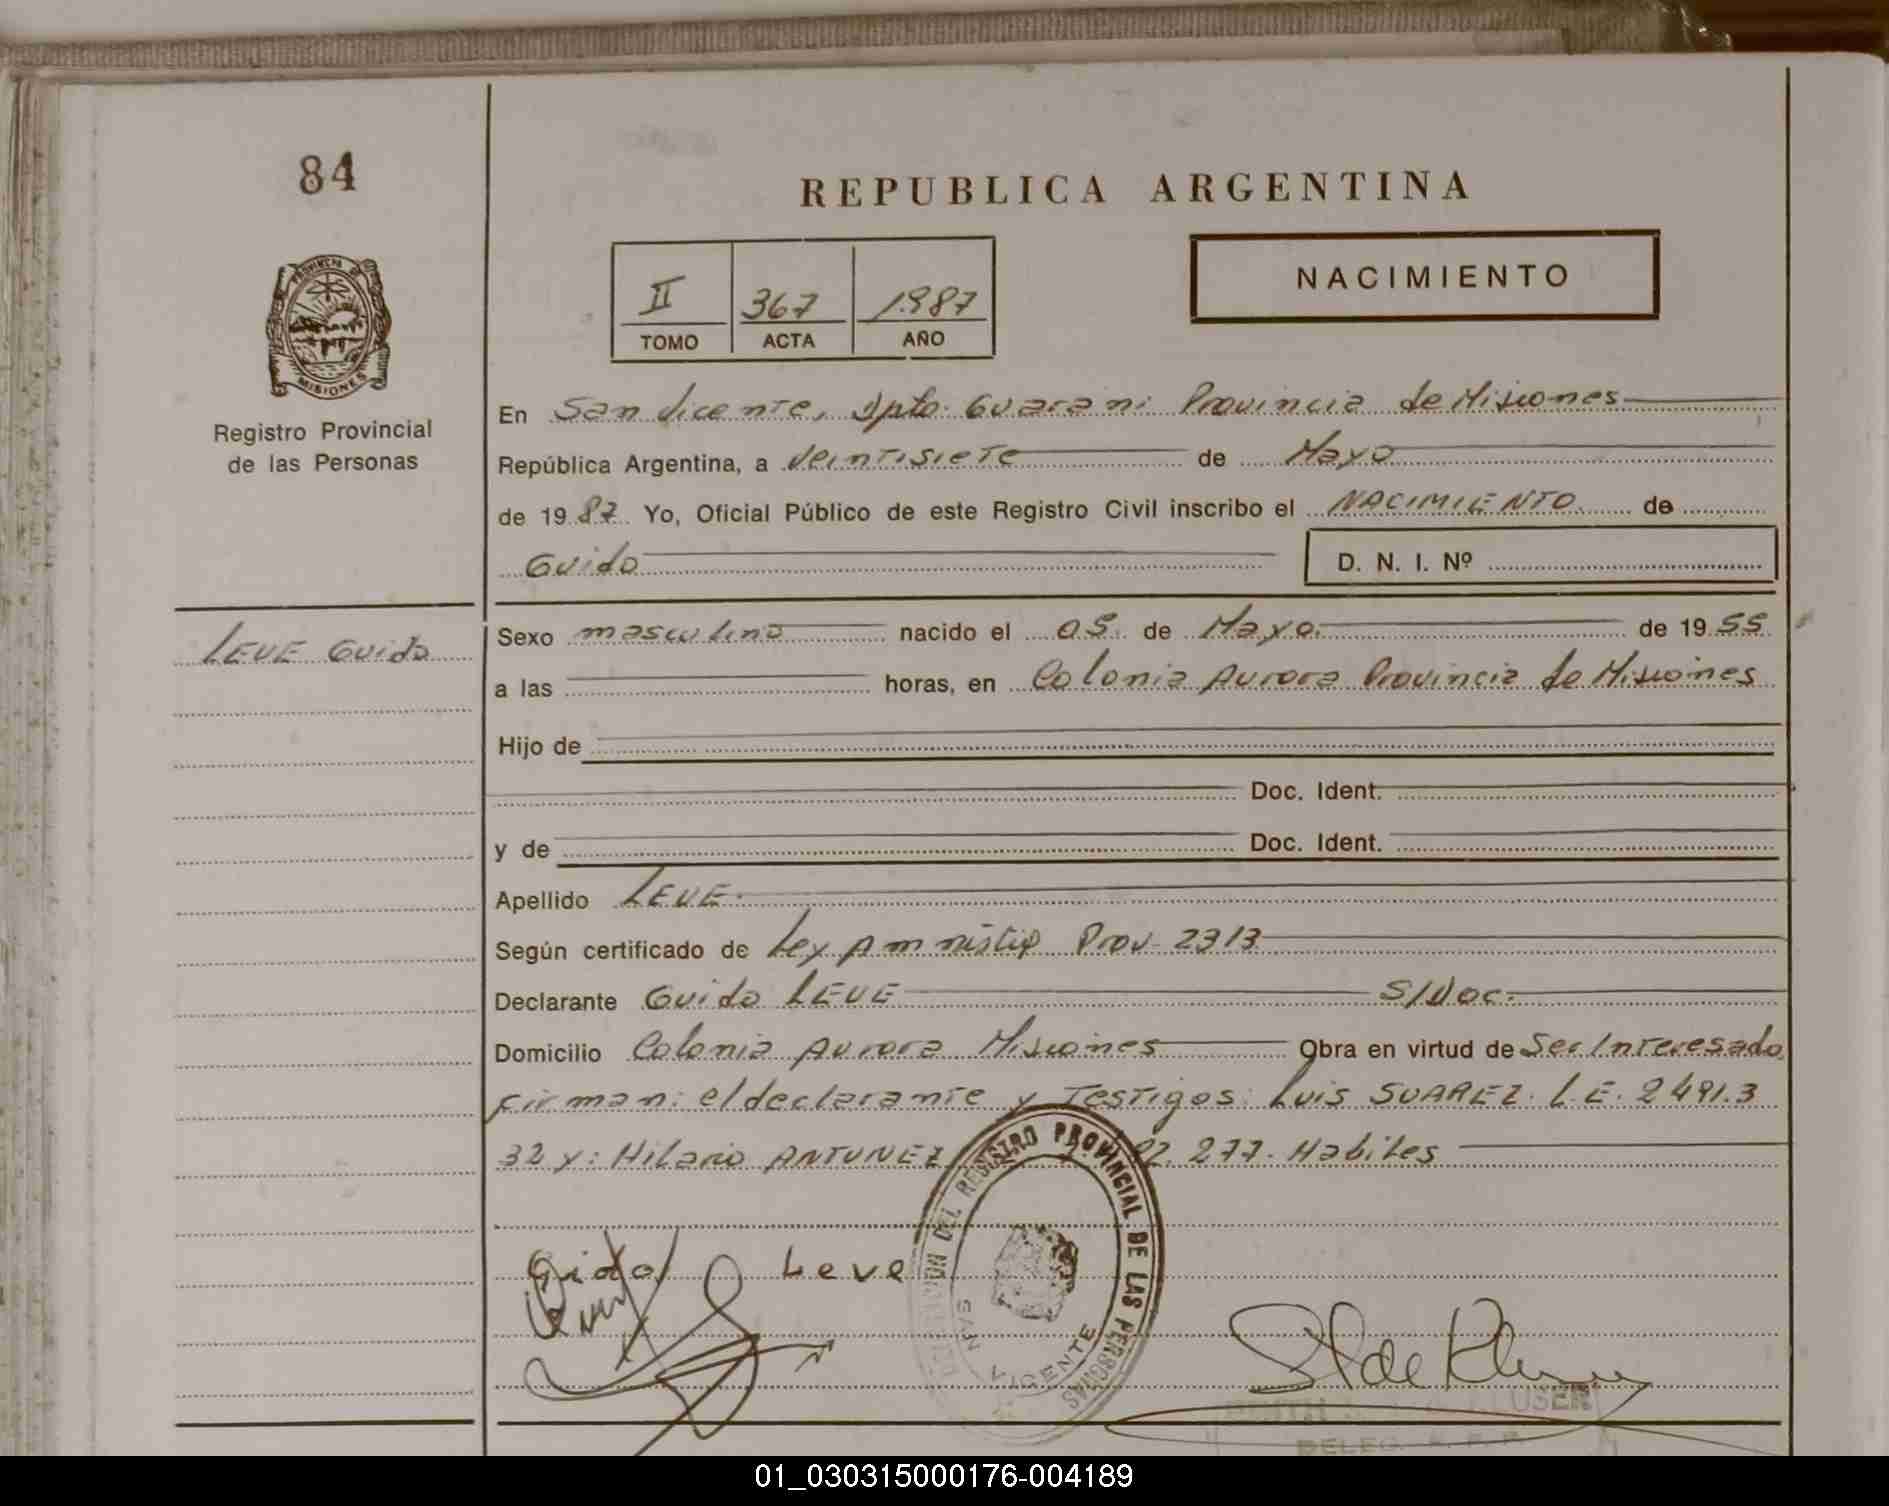 84
REPUBLICA ARGENTINA
II 367 1987
TOMO ACTA AÑO
NACIMIENTO
PROVINCIA DE
MISIONES
Registro Provincial
de las Personas
En San Vicente, Dpto. Guarani Provincia de Misiones
República Argentina, a veintisiete de Mayo
de 1987 Yo, Oficial Público de este Registro Civil inscribo el NACIMIENTO de
Guido D. N. I. Nº
LEVE Guido
Sexo masculino nacido el 05 de Mayo de 1955
a las horas, en Colonia Aurora Provincia de Misiones
Hijo de
Doc. Ident.
y de Doc. Ident.
Apellido LEVE
Según certificado de Ley Amnistia Prov. 2313
Declarante Guido LEVE S/Doc.
Domicilio Colonia Aurora Misiones Obra en virtud de Ser Interesado
firman: el declarante y Testigos: Luis SUAREZ. L.E. 2491.3
32 y: Hilario ANTUNEZ 277. Habiles
DEL REGISTRO PROVINCIAL DE LAS PERSONAS
SAN VICENTE
Gido Leve
DELEG.
01_030315000176-004189